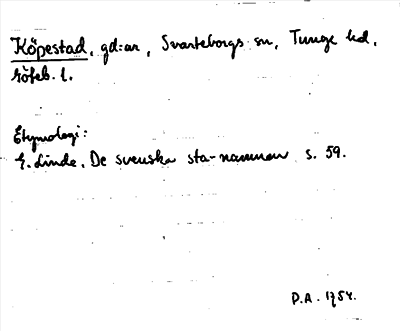 Köpestad, gd:ar, Svarteborgs sn, Tunge hd,
Göteb. l.
Etymologi:
E. Linde, De svenska sta-namnen s. 59.
P.A. 1954.